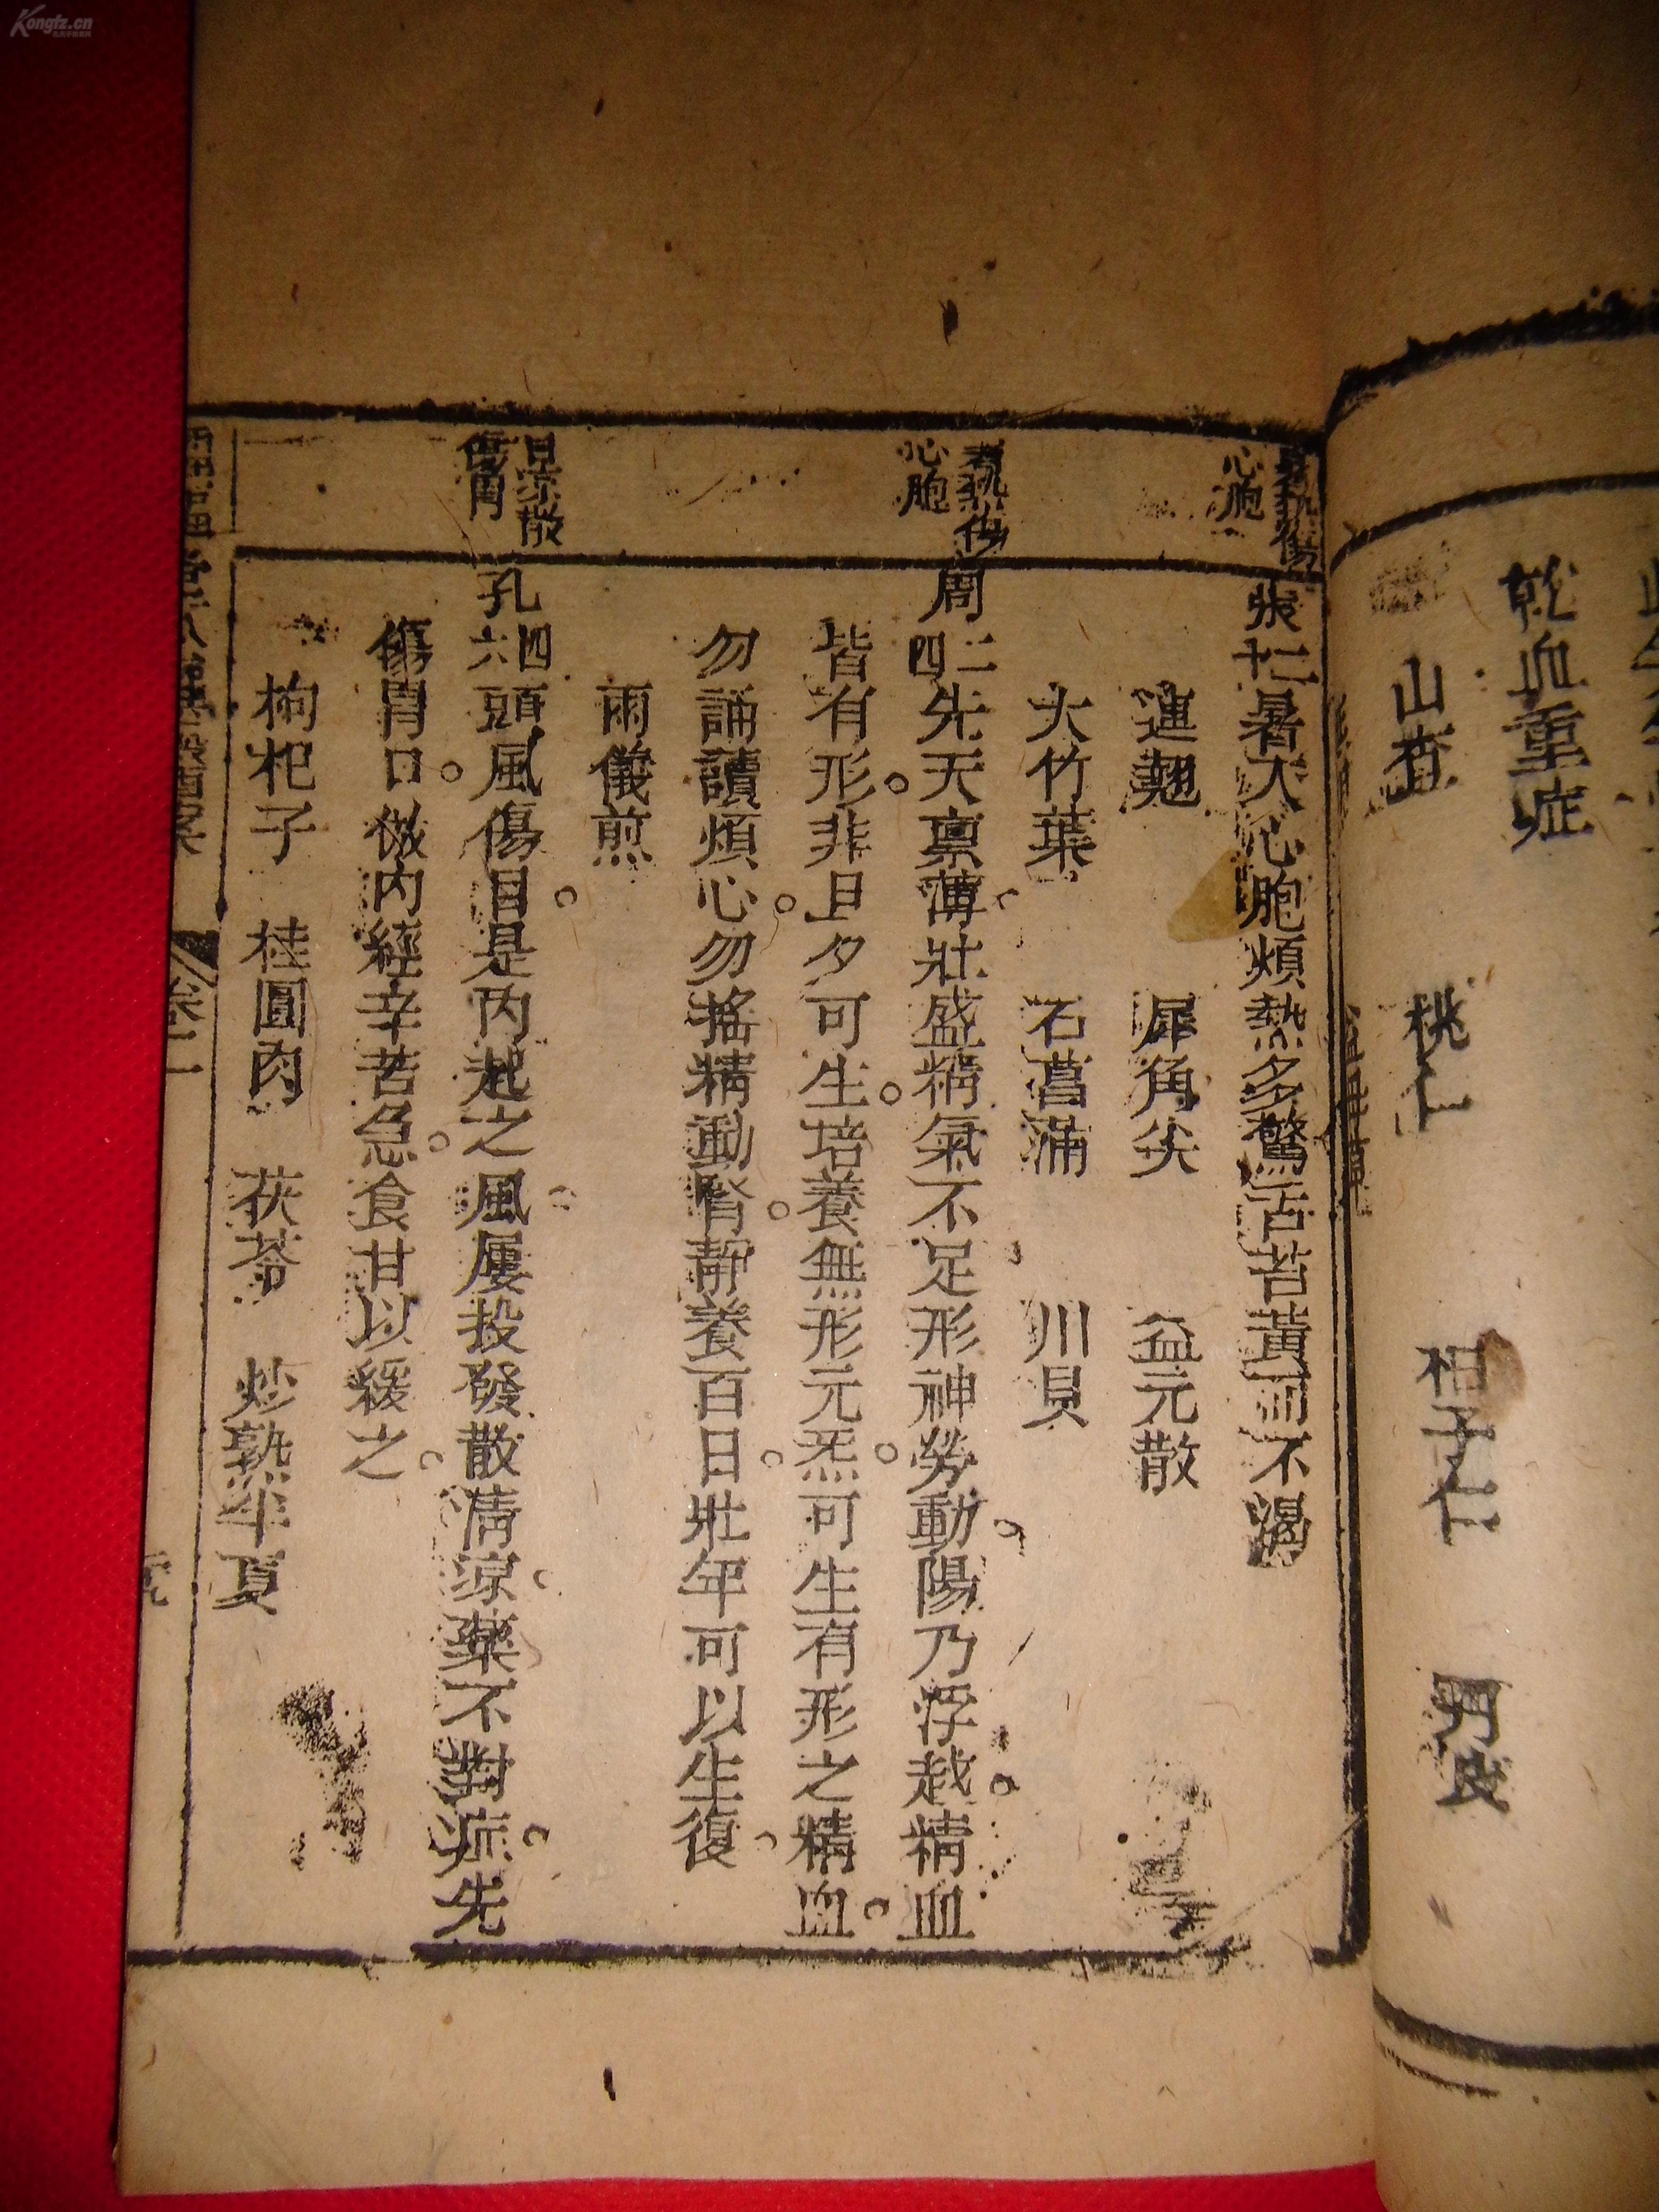 乾血重症
山查 桃仁 柏子仁 丹皮
暑熱傷
心胞
張十二暑入心胞煩熱多驚舌苔黃而不渴
連翹 犀角尖 益元散
大竹葉 石菖蒲 川貝
暑熱傷
心胞
周二四先天禀薄壯盛精氣不足形神勞動陽乃浮越精血
皆有形非旦夕可生培養無形元炁可生有形之精血
勿誦讀煩心勿搖精動腎靜養百日壯年可以生復
兩儀煎
涼散
傷胃
孔四六頭風傷目是內起之風屢投發散清涼藥不對症先
傷胃口倣內經辛苦急食甘以緩之
枸杞子 桂圓肉 茯苓 炒熟半夏
卷二
Kongfz.cn